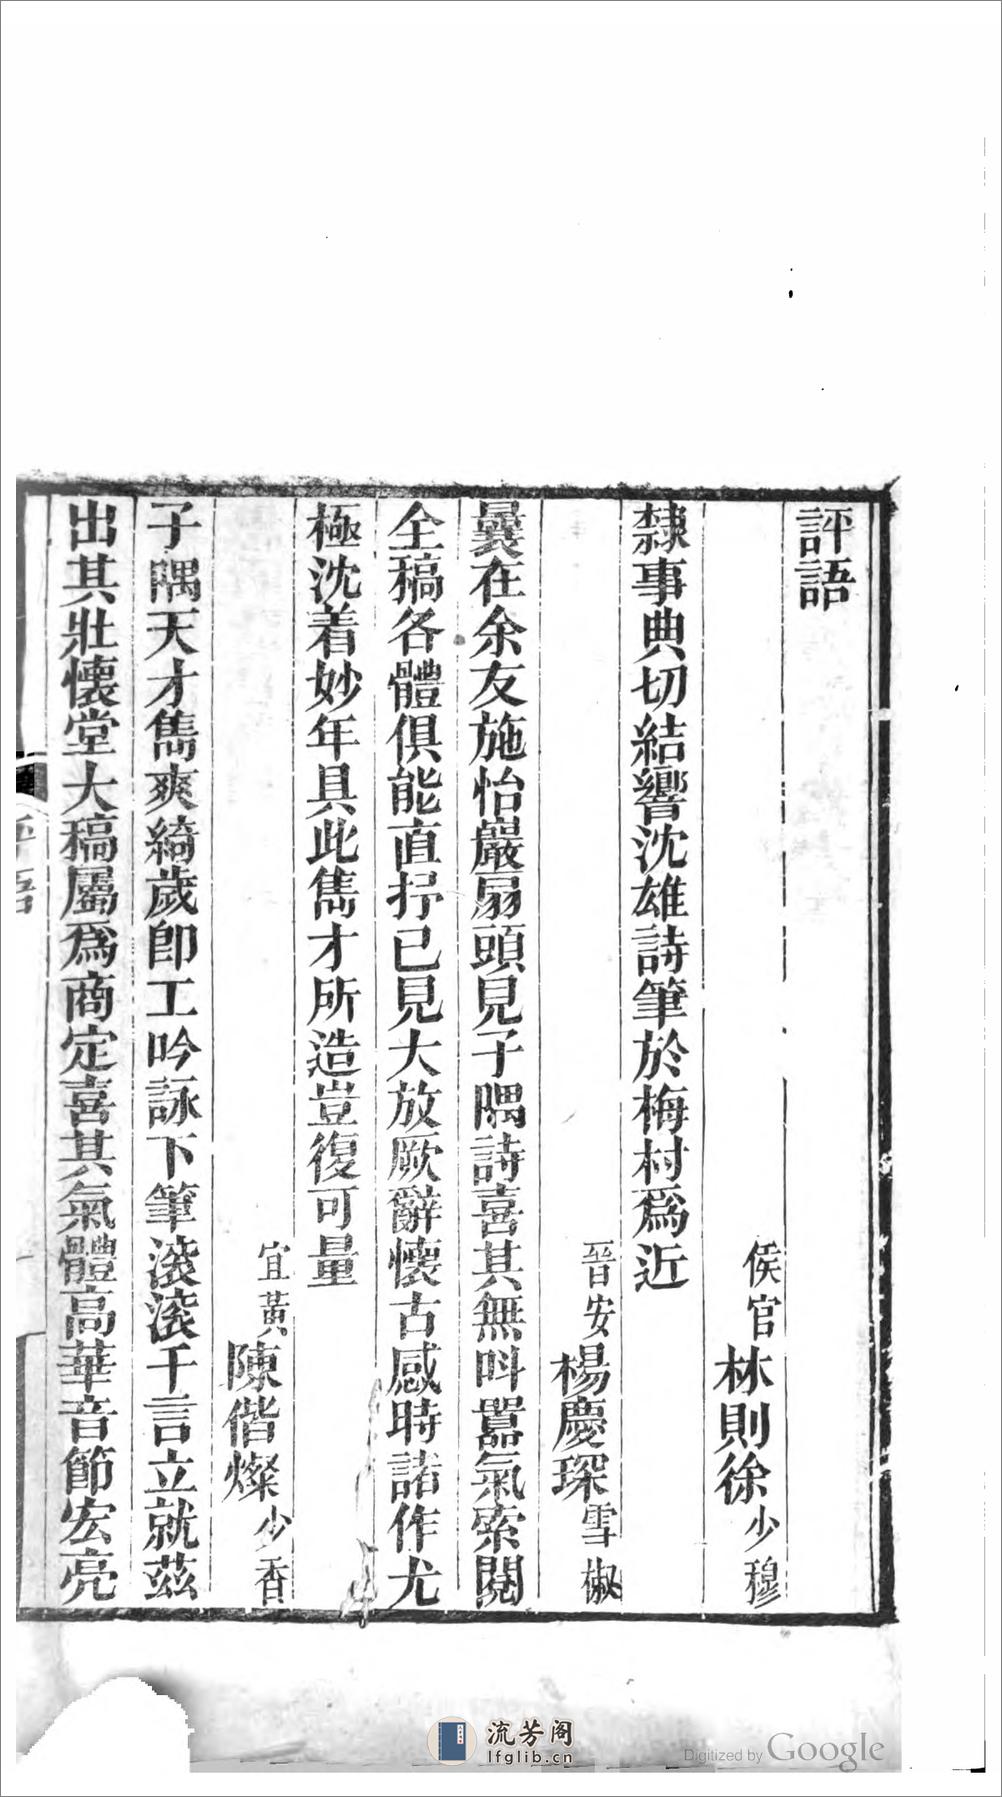 評語
侯官林則徐少穆
隸事典切結響沈雄詩筆於梅村爲近
晉安楊慶琛雪椒
曩在余友施怡巖扇頭見子隅詩喜其無呌囂氣索閱
全稿各體俱能直抒己見大放厥辭懷古感時諸作尤
極沈着妙年具此雋才所造豈復可量
宜黃陳偕燦少香
子隅天才雋爽綺歲卽工吟詠下筆滚滚千言立就茲
出其壯懷堂大稿屬爲商定喜其氣體高華音節宏亮
流芳阁
lfglib.cn
Digitized by Google